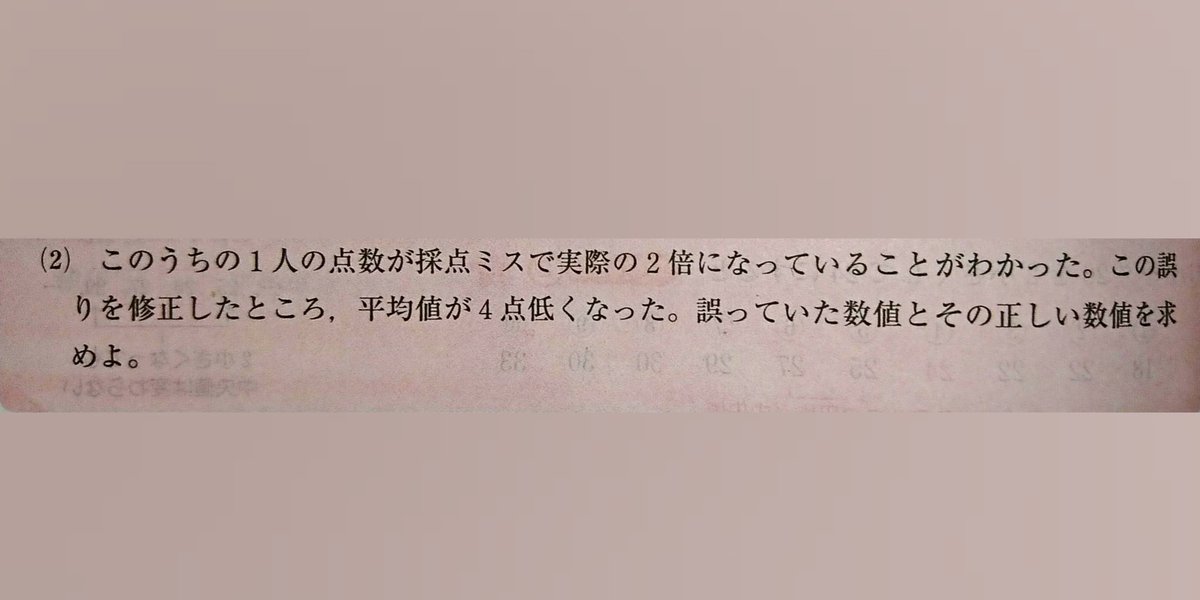 (2) このうちの1人の点数が採点ミスで実際の2倍になっていることがわかった。この誤
りを修正したところ，平均値が4点低くなった。誤っていた数値とその正しい数値を求
めよ。